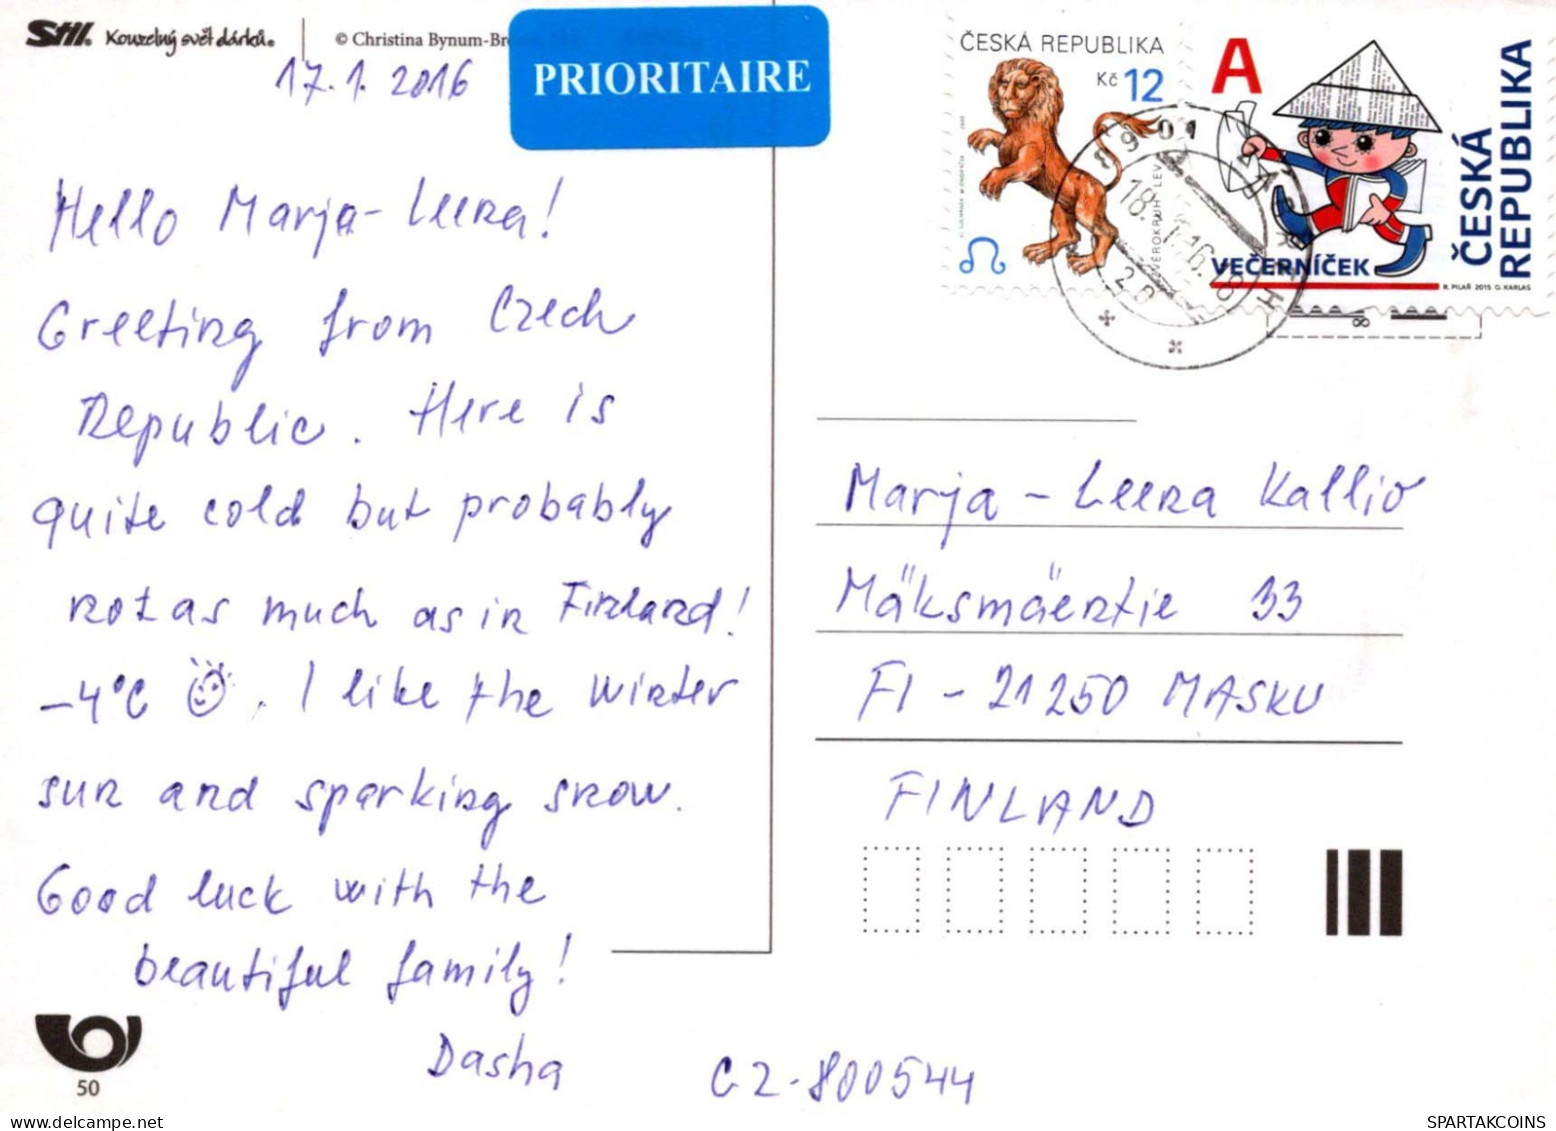 Stil. Kouzelný svět dárků.
© Christina Bynum-
17.1. 2016
PRIORITAIRE
ČESKÁ REPUBLIKA
Kč 12
A
ČESKÁ
REPUBLIKA
VEČERNÍČEK
R. PILAŘ 2015 G. KARLAS
Hello Marja-Leena!
Greeting from Czech
Republic. Here is
quite cold but probably
not as much as in Finland!
-4°C ☺. I like the winter
sun and sparking snow.
Good luck with the
beautiful family!
Dasha
CZ-800544
Marja - Leena Kallio
Mäksmäentie 33
FI - 21250 MASKU
FINLAND
50
SPARTAKCOINS.COM